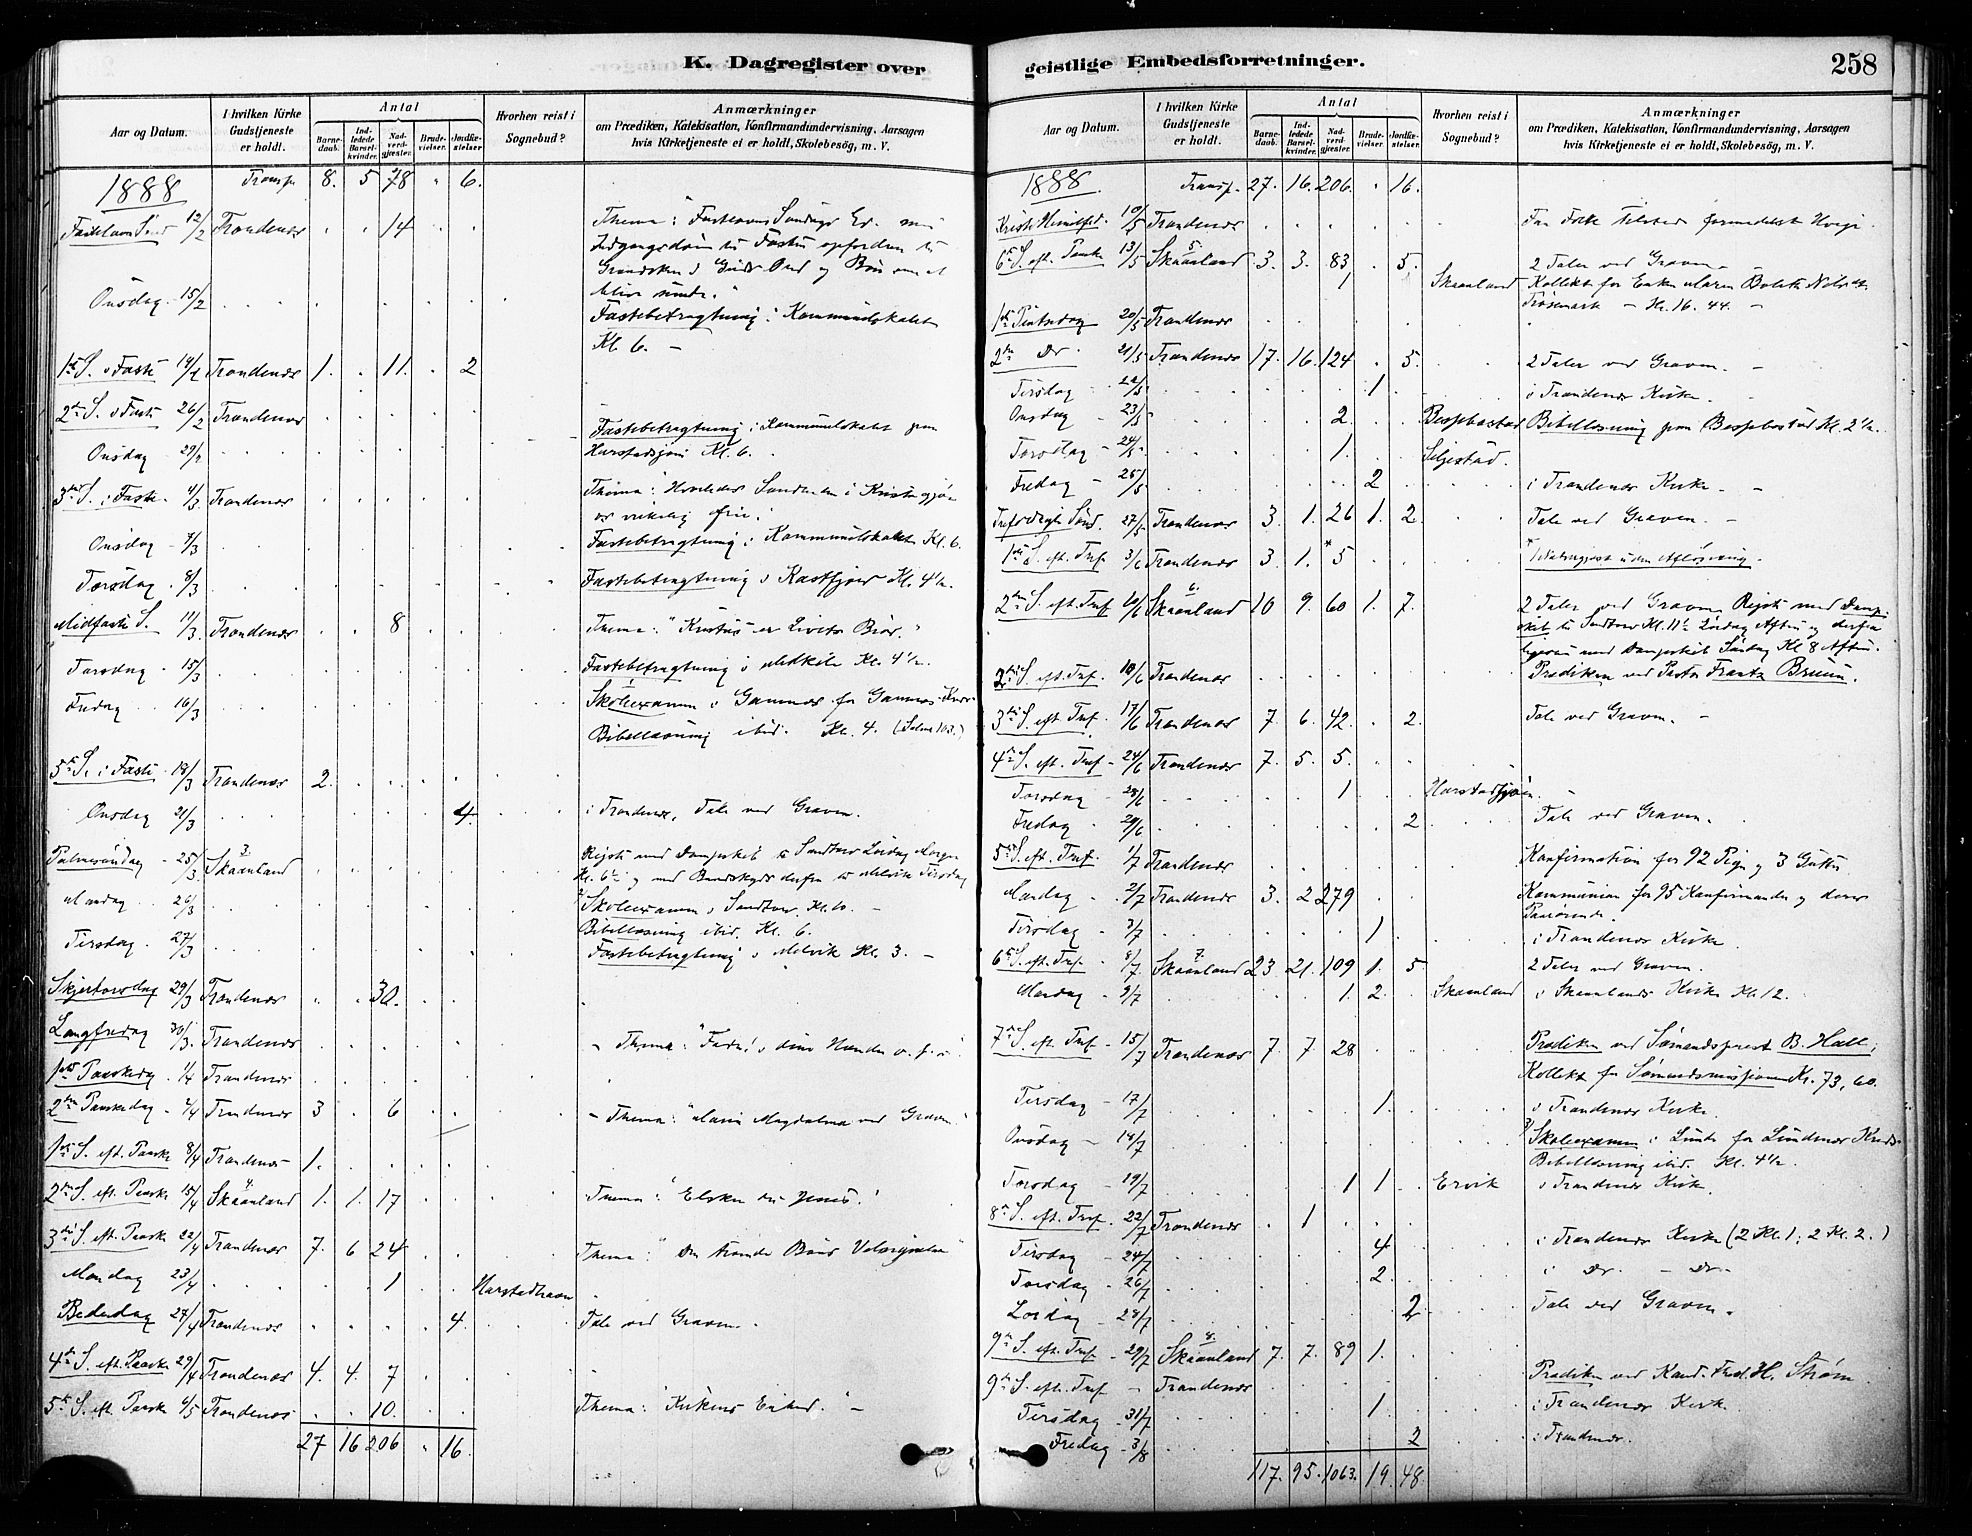 K. Dagregister over
Aar og Datum.
I hvilken Kirke Gudstjeneste er holdt.
Antal
Barne-daab.
Ind-ledede Barsel-kvinder.
Nad-verd-gjæster.
Brude-vielser.
Jordfæ-stelser
Hvorhen reist i Sognebud?
Anmærkninger
om Prædiken, Katekisation, Konfirmandundervisning, Aarsagen
hvis Kirketjeneste ei er holdt, Skolebesög, m. V.
1888 Transp. 8. 5 78 " 6.
Fastelavns Sønd 12/2 Trondenæs . . 14 . . Thema: "Fastelavns Søndags Ev.
til Faste opfordrer til
Guds Ord og Bøn om at
blive seende."
Onsdag 15/2 Fastebetragtning i Kommunelokalet
Kl. 6. –
1ste S. i Faste 19/2 Trondenæs 1. . 11. . 2
2den S. i Faste 26/2 Trondenæs
Onsdag 29/2 Fastebetragtning i Kommunelokalet paa
Harstadsjøen Kl. 6.
3die S. i Faste 4/3 Trondenæs Thema: Hvorledes i Kriste
Onsdag 7/3 Fastebetragtning i Kommunelokalet Kl. 6.
Torsdag 8/3 Fastebetragtning i Kastfjord Kl. 4½.
Midfaste S. 11/3 Trondenæs . . 8 . . Thema: "Kristus er Livets Brød."
Torsdag 15/3 Fastebetragtning i Medkila Kl. 4½.
Fredag 16/3 Skoleexamen i Gamnes for Gamnes Kreds
Bibellæsning ibid. Kl. 4. (Salme 103.)
5te S. i Faste 18/3 Trondenæs 2.
Onsdag 21/3 4. i Trondenæs, Tale ved Graven.
Palmesøndag 25/3 3. Skaanland Reiste med Dampskib til Sandtorv Lördag Morgen
Kl. 6½ og med Baadskyds derfra til Melvik Tirsdag
Mandag 26/3 Skoleexamen i Sandtorv Kl. 10. –
Bibellæsning ibid. Kl. 6.
Tirsdag 27/3 Fastebetragtning i Melvik Kl. 3. –
Skjertorsdag 29/3 Trondenæs " . 30.
Langfredag 30/3 Trondenæs – Thema: "Fader! i dine Hænder o. s. v."
1ste Paaskedag 1/4 Trondenæs
2den Paaskedag 2/4 Trondenæs 3 . 6 – Thema: "Maria Magdalena ved Graven."
1ste S. eft. Paaske 8/4 Trondenæs 1.
2den S. eft. Paaske 15/4 4. Skaanland 1. 1. 17 Thema: "Elsker du Jesus?"
3die S. eft. Paaske 22/4 Trondenæs 7. 6 24 Thema: "
Mandag 23/4 1 Harstadhavn
Bededag 27/4 Trondenæs 4. Tale ved Graven.
4de S. eft. Paaske 29/4 Trondenæs 4. 4. 7
5te S. eft. Paaske 6/5 Trondenæs . . 10. Thema: "Kirkens Enhed." –
27 16 206 " 16.
geistlige Embedsforretninger.
258
Aar og Datum.
I hvilken Kirke Gudstjeneste er holdt.
Antal
Barne-daab.
Ind-ledede Barsel-kvinder.
Nad-verd-gjæster.
Brude-vielser.
Jordfæ-stelser.
Hvorhen reist i Sognebud?
Anmærkninger
om Prædiken, Katekisation, Konfirmandundervisning, Aarsagen
hvis Kirketjeneste ei er holdt, Skolebesög, m. V.
1888. Transp. 27. 16. 206. . 16.
Kristi Himmelfd. 10/5 Trondenæs Faa Folk tilstede formedelst
6te S. eft. Paaske 13/5 5. Skaanland 3. 3. 83 . 5. 2 Taler ved Graven
1 Skaanland Kollekt for Enken Maren
– Kr. 16. 44. –
1ste Pintsedag 20/5 Trondenæs
2den Do. 21/5 Trondenæs 17. 16. 124 . 5. 2 Taler ved Graven. –
Tirsdag 22/5 1 i Trondenæs Kirke.
Onsdag 23/5 2. Bessebostad Bibellæsning paa Bessebostad Kl. 2½.
Torsdag 24/5 1. Seljestad.
Fredag 25/5 2 i Trondenæs Kirke. –
Trefoldigh. Sønd. 27/5 Trondenæs 3. 1. 26 1. 2. Tale ved Graven. –
1ste S. eft. Tref. 3/6 Trondenæs 3. 1. *5 * uden Afløsning.
2den S. eft. Tref. 10/6 6. Skaanland 10 9. 60 1. 7. 2 Taler ved Graven. Reiste med Damp-
skib til Sandtorv Kl. 11½ Lördag Aften og derfra
med Dampskib Søndag Kl 8 Aften.
2den S. eft. Tref. 10/6 Trondenæs Prædiken ved Pastor Frantz Bruun.
3die S. eft. Tref. 17/6 Trondenæs 7. 6. 42. . 2. Tale ved Graven. –
4de S. eft. Tref. 24/6 Trondenæs 7. 5. 5.
Torsdag 28/6 1 Harstadsjøen.
Fredag 29/6 2 Tale ved Graven.
5te S. eft. Tref. 1/7 Trondenæs Konfirmation for 92 Piger og 3 Gutter
Mandag 2/7 Trondenæs 3. 2 279 Kommunion for 95 Konfirmander og deres
Paarørende.
Tirsdag 3/7 1 i Trondenæs Kirke
6te S. eft. Tref. 8/7 7. Skaanland 23. 21. 109 1. 5 2 Taler ved Graven.
Mandag 9/7 1. 2. Skaanland i Skaanlands Kirke Kl. 12.
7de S. eft. Tref. 15/7 Trondenæs 7. 7. 28 Prædiken ved Sømandsprest B. Hall;
Kollekt for Sømandsmissionen Kr. 73, 60.
Tirsdag 17/7 1. i Trondenæs Kirke.
Onsdag 18/7 Skoleexamen i Lundnæs Kreds
Bibellæsning ibid. Kl. 4½.
Torsdag 19/7 1 1. Ervik i Trondenæs Kirke.
8de S. eft. Tref. 22/7 Trondenæs . 1
Tirsdag 24/7 4 i Trondenæs Kirke (2 Kl. 1; 2 Kl. 2.)
Torsdag 26/7 2. i Do. – Do.
Lördag 28/7 2 Tale ved Graven.
9de S. eft. Tref. 29/7 8. Skaanland 7. 7. 89 1.
9de S. eft. Tref. – Trondenæs Prædiken ved Kand. Fred. H. Strøm
Tirsdag 31/7 1. i Trondenæs Kirke
Fredag 3/8 2 i Trondenæs.
117. 95. 1063. 19. 48.